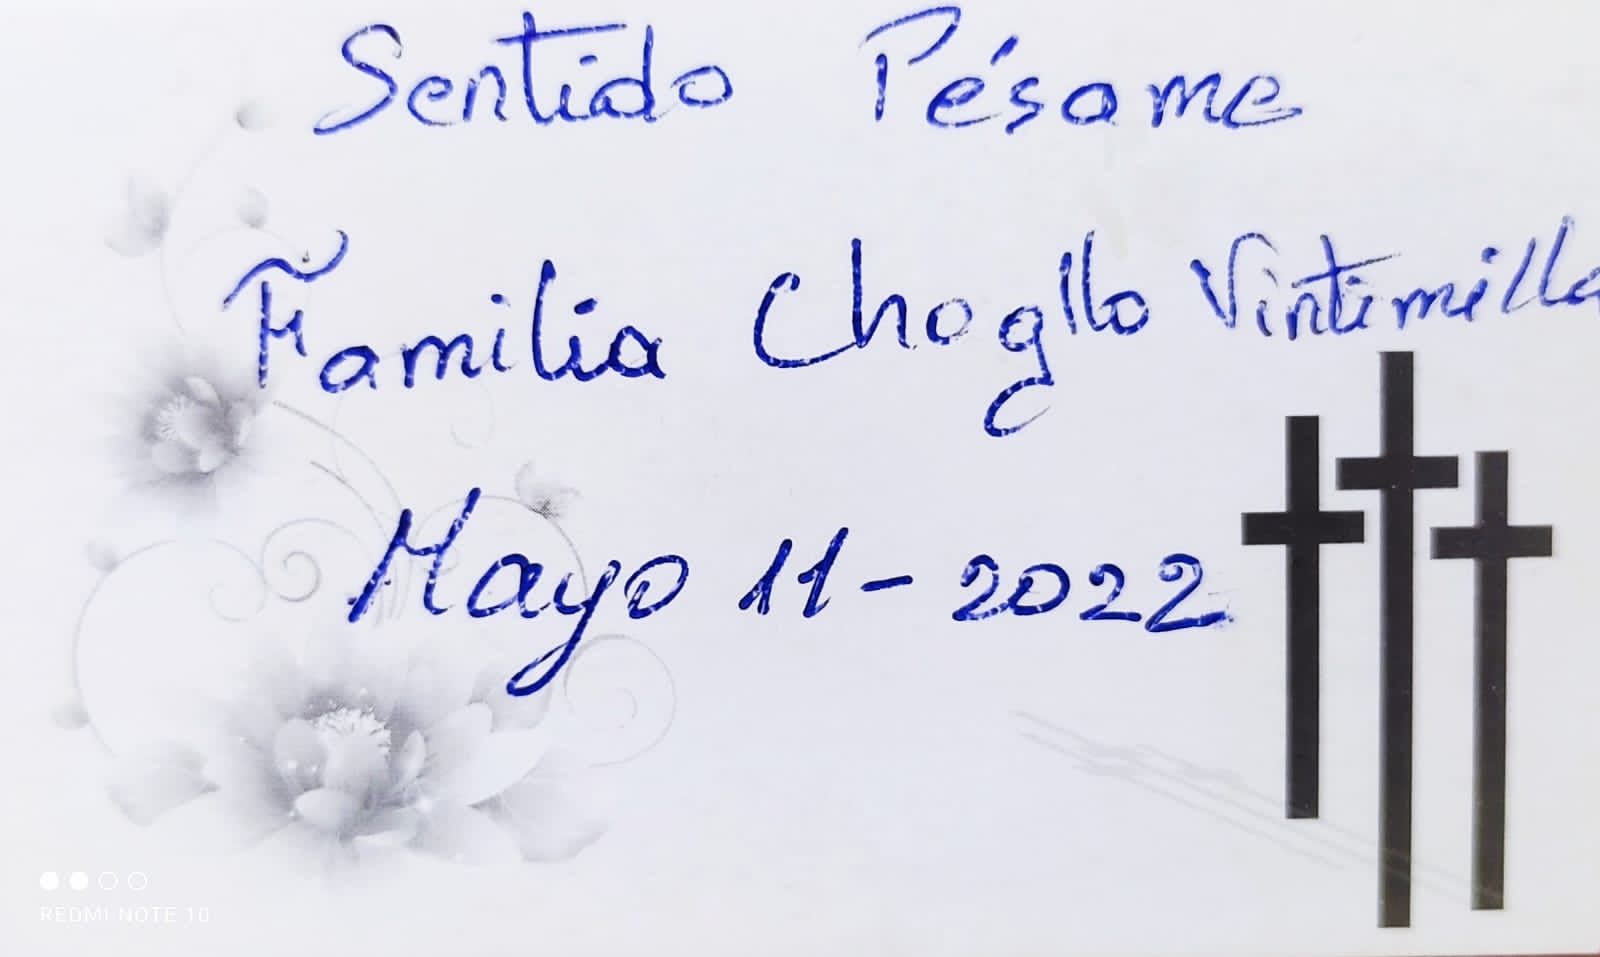 Sentido Pésame
Familia Chogllo Vintimilla
Mayo 11-2022
REDMI NOTE 10